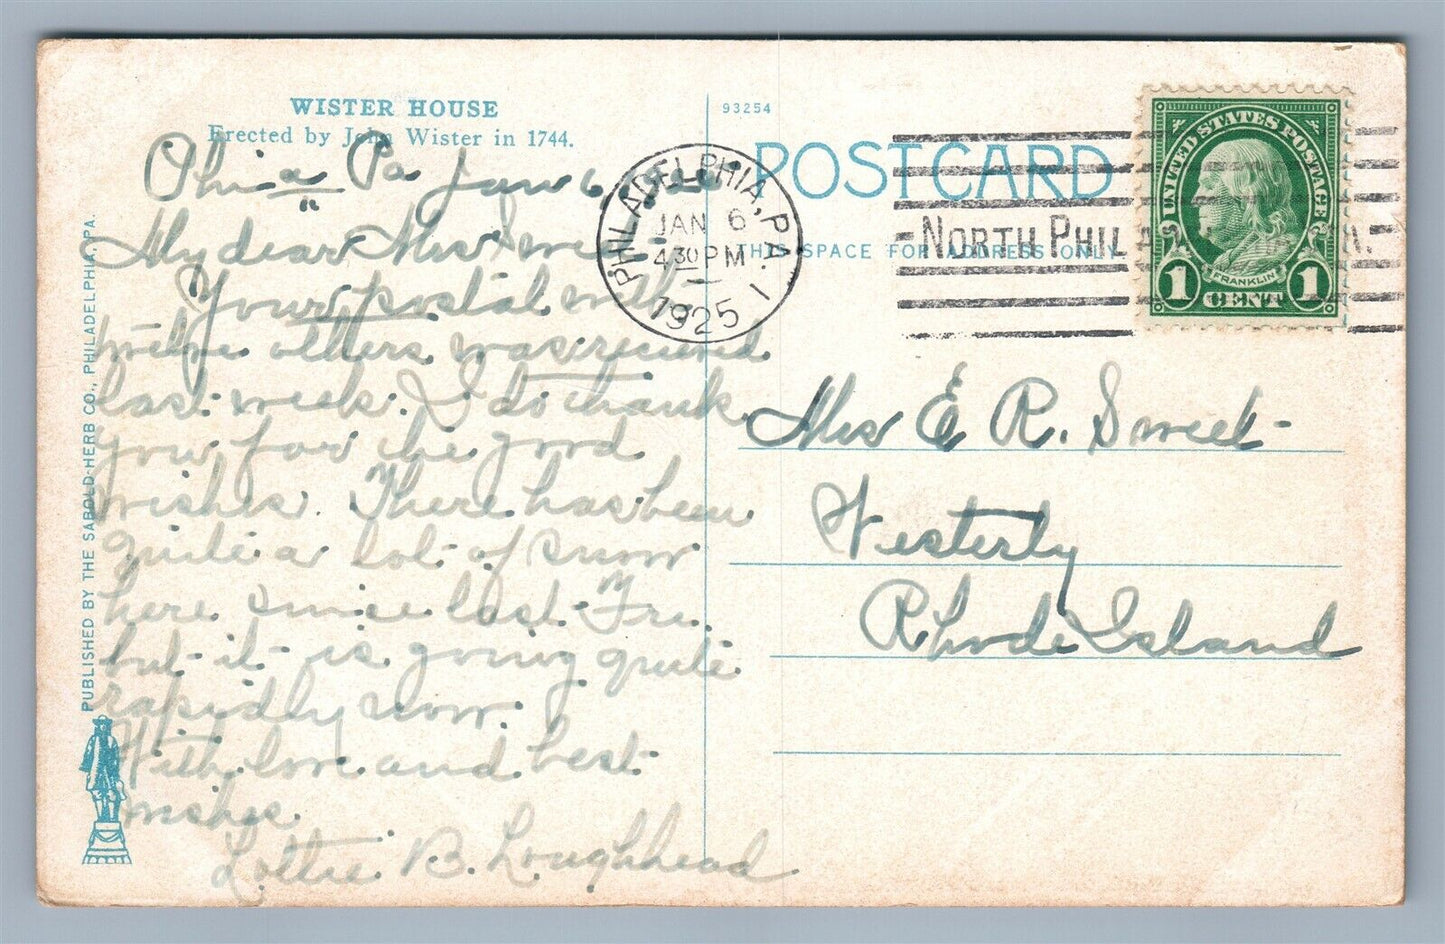 WISTER HOUSE
Erected by John Wister in 1744.
Phila Pa Jan 6
My dear Mrs Sweet-
Your postal with
twelve others was received
last week. I do thank
you for the good
wishes. There has been
quite a lot of snow
here since last Fri.
but it is going quite
rapidly now.
With love and best
wishes.
Lottie B. Loughhead
PUBLISHED BY THE SABOLD-HERB CO., PHILADELPHIA, PA.
93254
POST CARD
THIS SPACE FOR ADDRESS ONLY
PHILADELPHIA, PA.
JAN 6
4 30 PM
1925
1
NORTH PHILA
UNITED STATES POSTAGE
FRANKLIN
1 CENT 1
Mrs E R. Sweet-
Westerly
Rhode Island